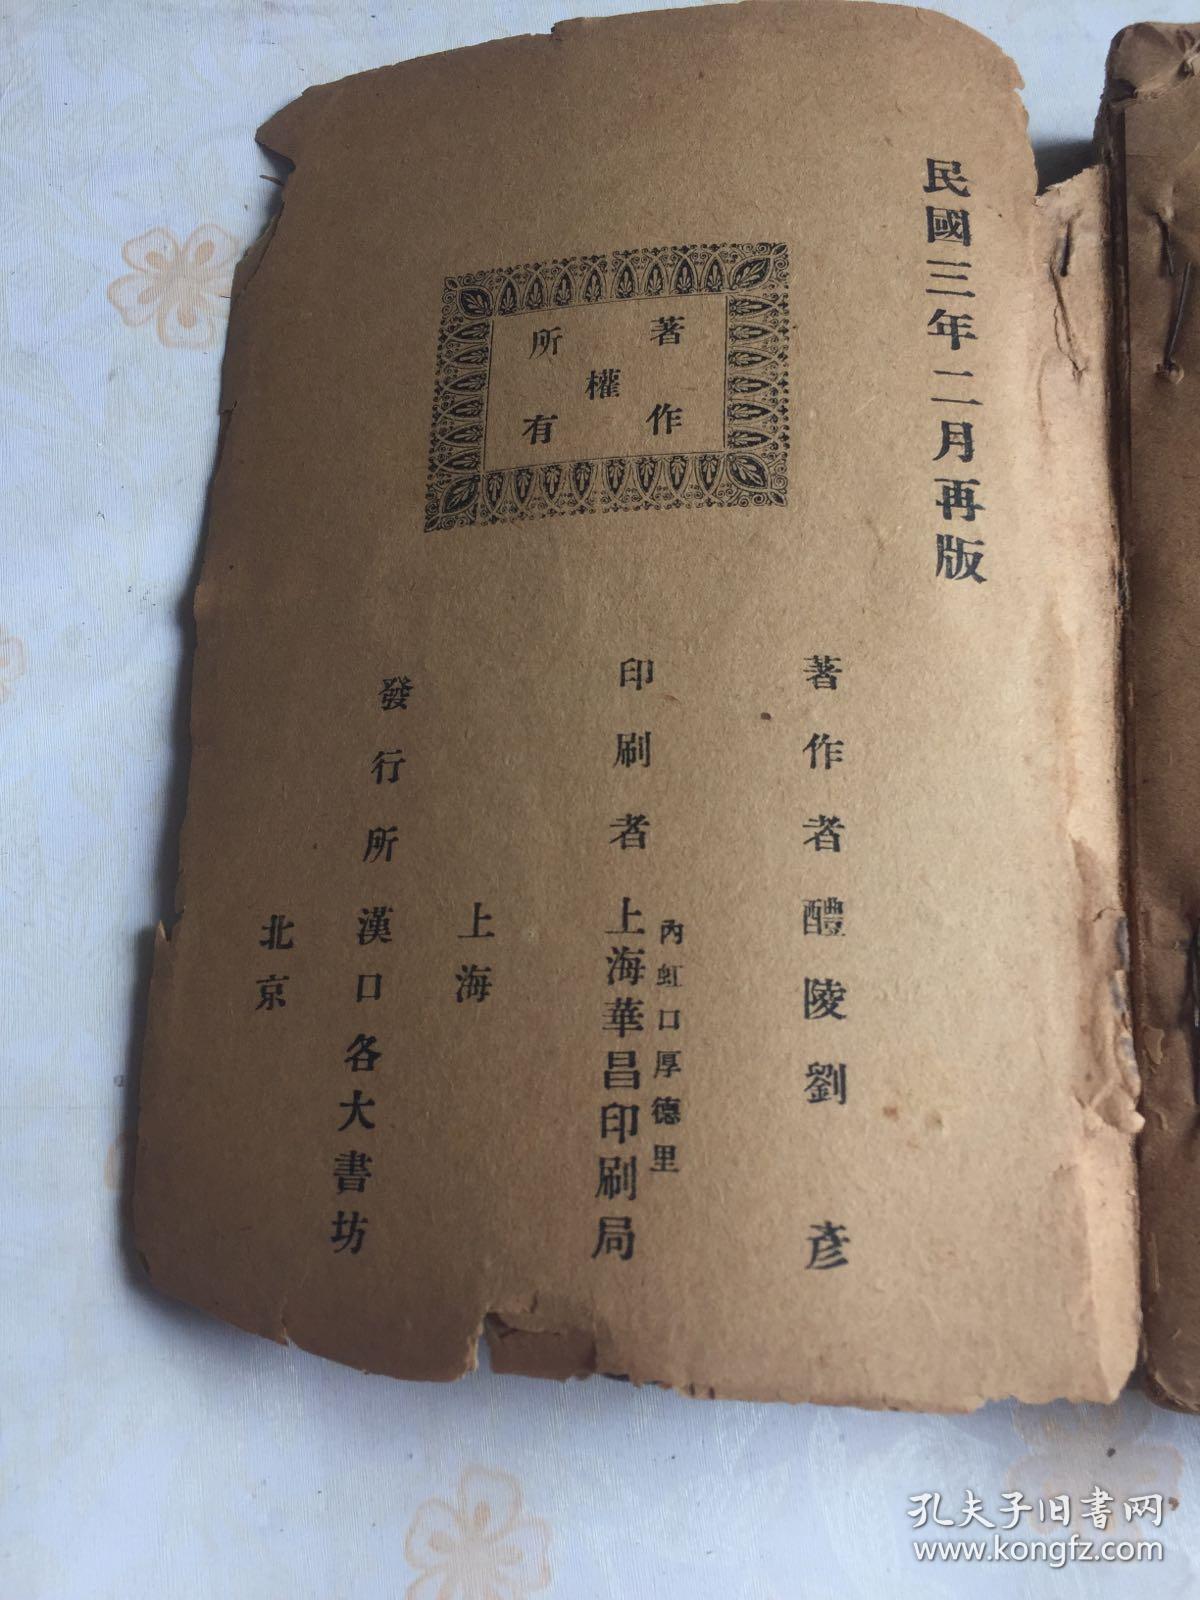 民國三年二月再版
著作權所有
著作者醴陵劉彥
內虹口厚德里
印刷者上海華昌印刷局
上海
發行所漢口各大書坊
北京
孔夫子旧书网
www.kongfz.com